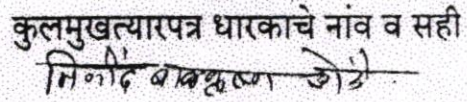 कुलमुखत्यारपत्र धारकाचे नांव व सही
बाळकृष्ण